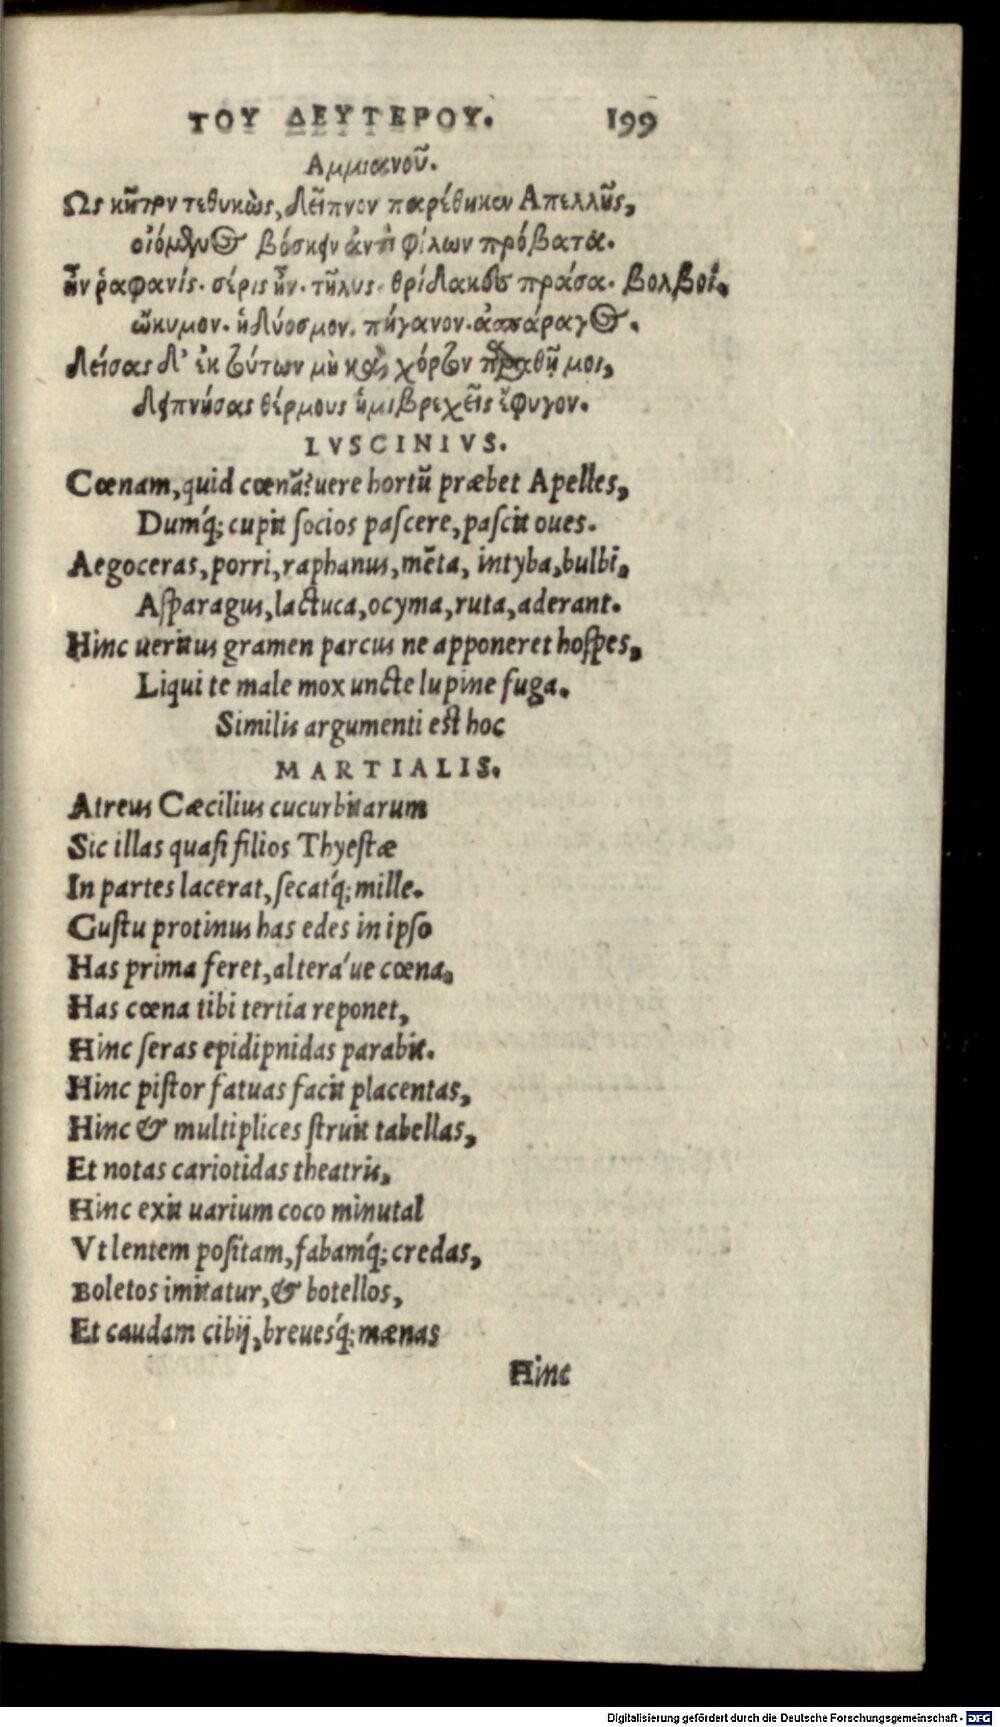 ΤΟΥ ΔΕΥΤΕΡΟΥ. 199
Αμμιανοῦ.
Ως κῆπον τεθυκὼς, δεῖπνον παρέθηκεν Απελλῆς,
οἰόμενος βόσκειν ἀντὶ φίλων πρόβατα.
ἦν ῥαφανίς. σέρις ἦν. τῆλις. θρίδακες πράσα. βολβοί.
ὤκυμον. ἡδύοσμον. πήγανον. ἀσπάραγος.
δείσας δ' ἐκ τούτων μὴ καὶ χόρτον παραθῇ μοι,
δειπνήσας θέρμους ἡμιβρεχεῖς ἔφυγον.
LVSCINIVS.
Cœnam, quid cœnã? uere hortũ præbet Apelles,
Dumq́; cupit ſocios paſcere, paſcit oues.
Aegoceras, porri, raphanus, mẽta, intyba, bulbi,
Aſparagus, lactuca, ocyma, ruta, aderant.
Hinc ueritus gramen parcus ne apponeret hoſpes,
Liqui te male mox uncte lupine fuga.
Similis argumenti eſt hoc
MARTIALIS.
Atreus Cæcilius cucurbitarum
Sic illas quaſi filios Thyeſtæ
In partes lacerat, ſecatq́; mille.
Guſtu protinus has edes in ipſo
Has prima feret, altera´ue cœna,
Has cœna tibi tertia reponet,
Hinc ſeras epidipnidas parabit.
Hinc piſtor fatuas facit placentas,
Hinc & multiplices ſtruit tabellas,
Et notas cariotidas theatris,
Hinc exit uarium coco minutal
Vt lentem poſitam, fabamq́; credas,
Boletos imitatur, & botellos,
Et caudam cibij, breuesq́; mænas
Hinc
Digitalisierung gefördert durch die Deutsche Forschungsgemeinschaft - DFG